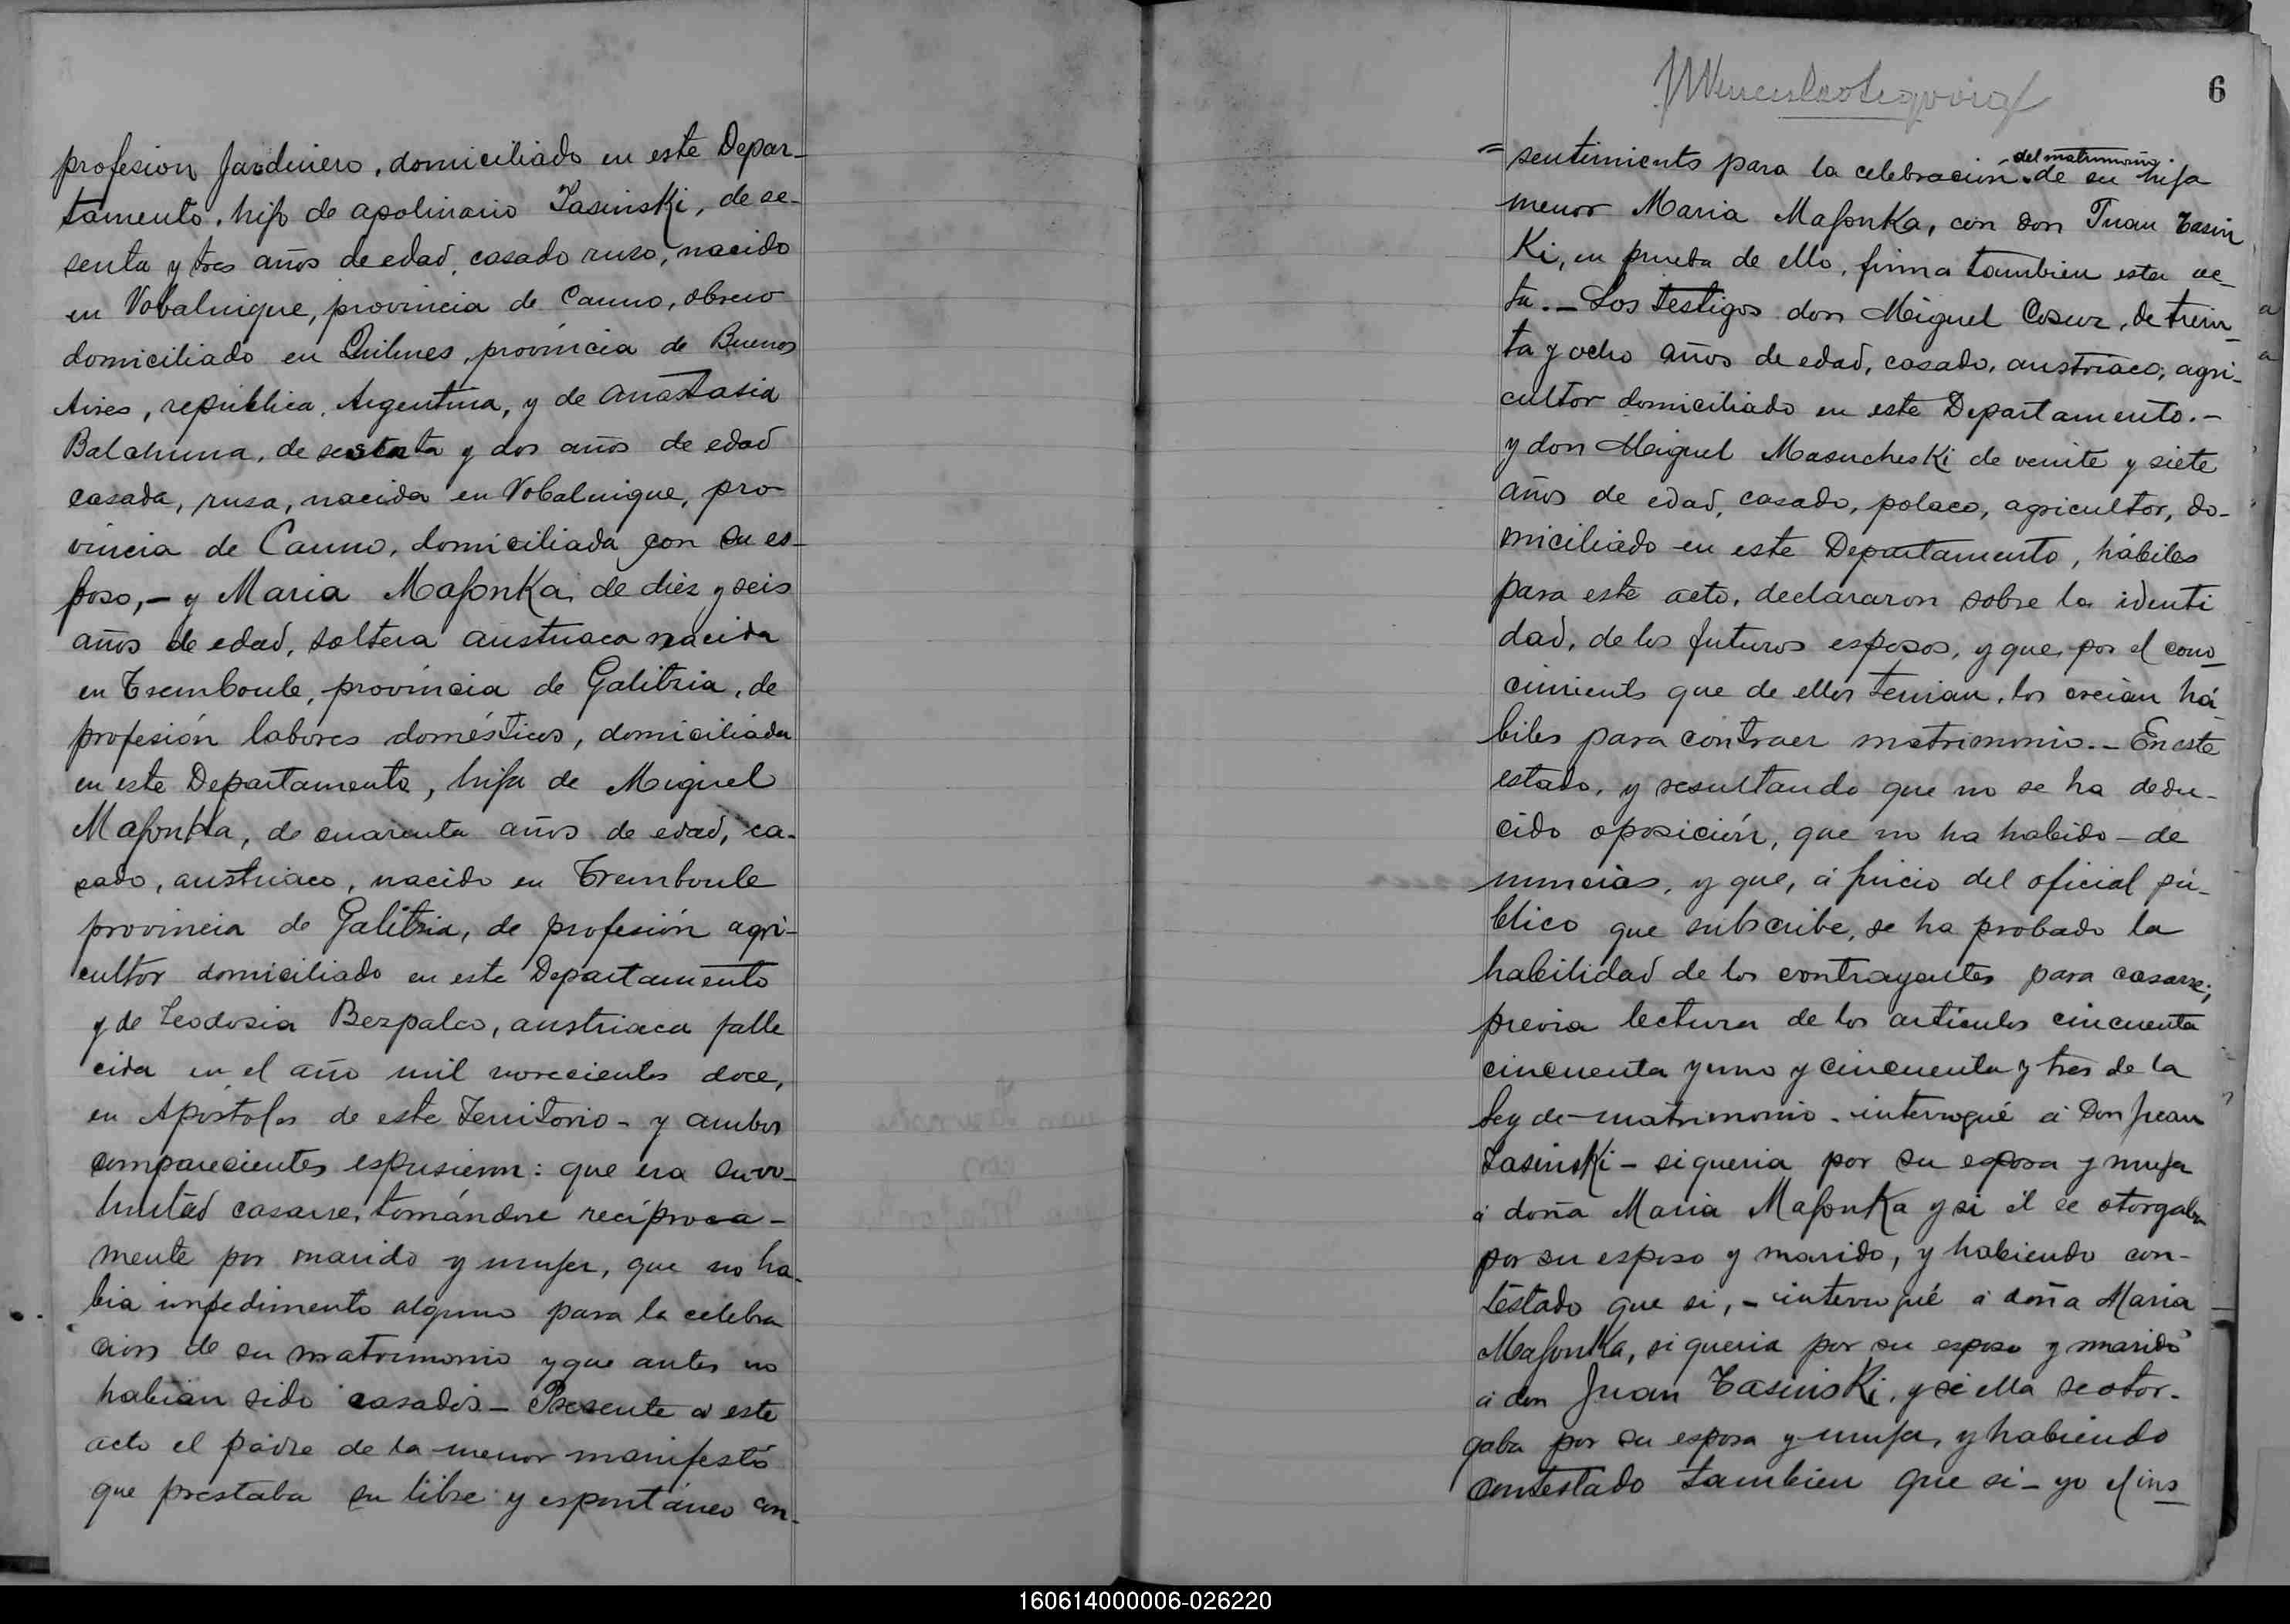 profesion Jardinero, domiciliado en este Depar-
tamento, hijo de apolinario Iasinski, de se-
senta y tres años de edad, casado ruso, nacido
en Vobalnique, provincia de Cauno, obrero
domiciliado en Quilmes, provincia de Buenos
Aires, república Argentina, y de Anastasia
Balchuna, de sesenta y dos años de edad
casada, rusa, nacida en Vobalnique, pro-
vincia de Cauno, domiciliada con su es-
poso,- y Maria Majonka de diez y seis
años de edad, soltera austriaca nacida
en Tremboule, provincia de Galitzia, de
profesión labores domésticos, domiciliada
en este Departamento, hija de Miguel
Majonka, de cuarenta años de edad, ca-
sado, austriaco, nacido en Tremboule
provincia de Galitzia, de profesión agri-
cultor domiciliado en este Departamento
y de Teodosia Bezpalco, austriaca falle
cida en el año mil novecientos doce,
en Apóstoles de este Territorio - y ambos
comparecientes espusieron: que era su vo-
luntad casarse, tomándose recíproca-
mente por marido y mujer, que no ha-
bia impedimento alguno para la celebra
cion de su matrimonio y que antes no
habian sido casados - Presente a este
acto el padre de la menor manifestó
que prestaba su libre y espontáneo con-
6
= sentimiento para la celebracion del matrimonio de su hija
menor Maria Majonka, con don Juan Iasin
Ki, en prueba de ello, firma tambien esta ac-
ta.- Los testigos don Miguel Cosur, de trein-
ta y ocho años de edad, casado, austriaco, agri-
cultor domiciliado en este Departamento.-
y don Miguel Masucheski de veinte y siete
años de edad, casado, polaco, agricultor, do-
miciliado en este Departamento, hábiles
para este acto, declararon sobre la identi
dad, de los futuros esposos, y que, por el cono-
cimiento que de ellos tenian, los creian há-
biles para contraer matrimonio.- En este
estado, y resultando que no se ha dedu-
cido oposición, que no ha habido - de
nuncias, y que, á juicio del oficial pú-
blico que subscribe, se ha probado la
habilidad de los contrayentes para casarse;
previa lectura de los artículos cincuenta
cincuenta y uno y cincuenta y tres de la
ley de matrimonio - interrogué á Don Juan
Iasinski - si queria por su esposa y mujer
á doña Maria Majonka y si él se otorgaba
por su esposo y marido, y habiendo con-
testado que si, - interrogué á doña Maria
Majonka, si queria por su esposo y marido
á don Juan Iasinski, y si ella se otor-
gaba por su esposa y mujer, y habiendo
contestado tambien que si - yo el ins-
160614000006-026220